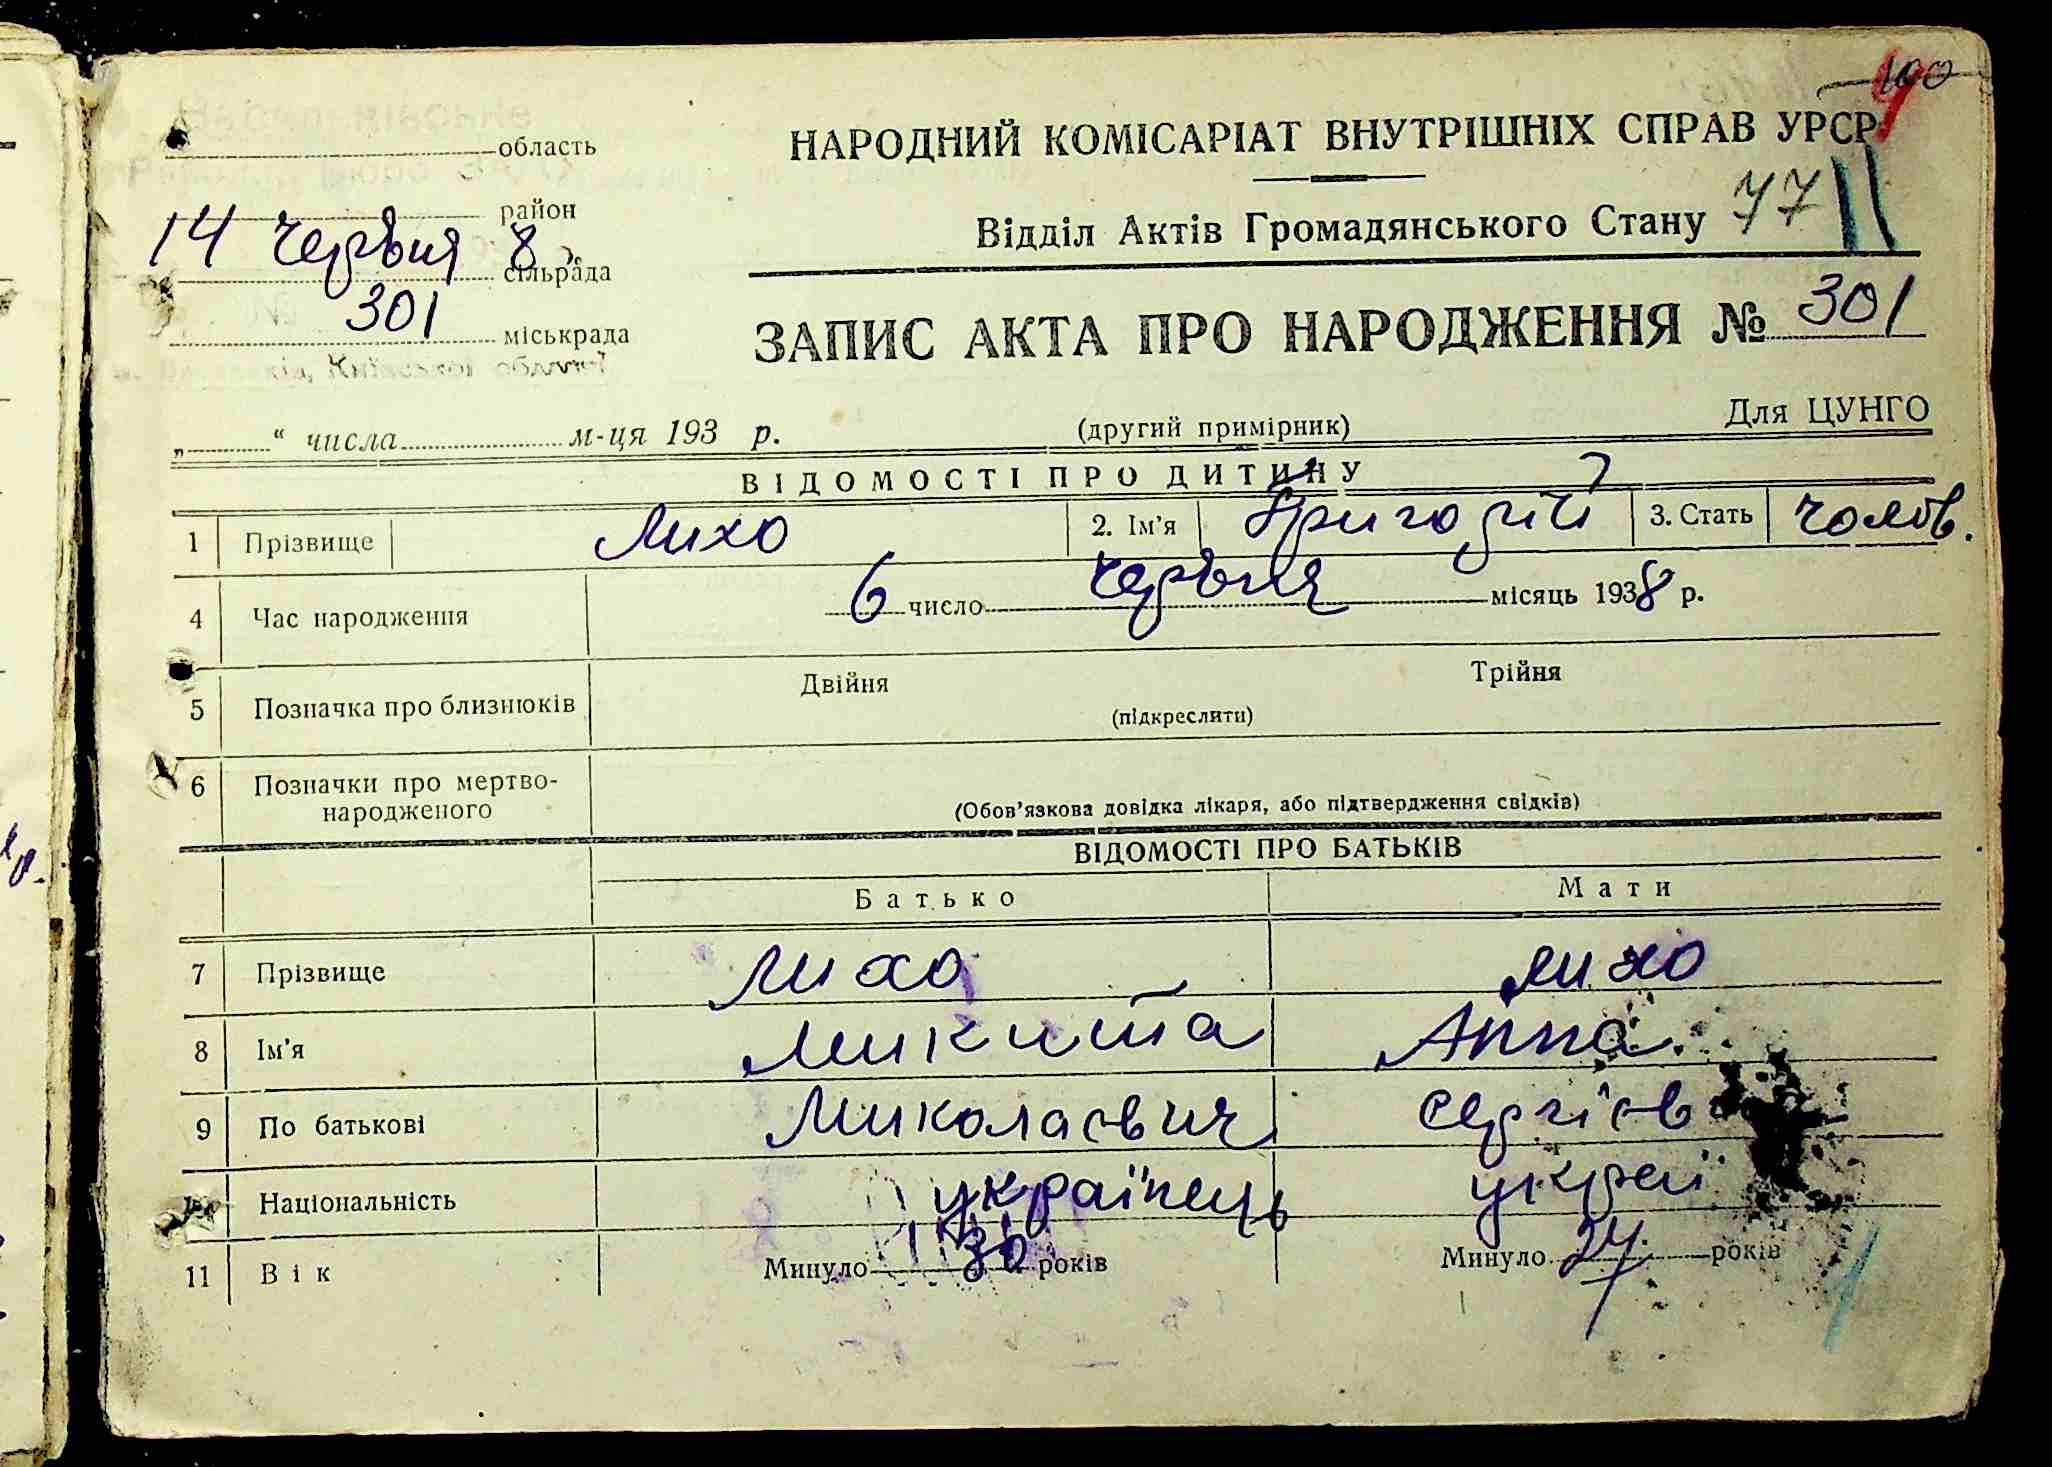 100
область
НАРОДНИЙ КОМІСАРІАТ ВНУТРІШНІХ СПРАВ УРСР
район
Відділ Актів Громадянського Стану 77
14 червня 8
сільрада
301
міськрада
ЗАПИС АКТА ПРО НАРОДЖЕННЯ № 301
Київської області
„ “ числа м-ця 193 р. (другий примірник) Для ЦУНГО
ВІДОМОСТІ ПРО ДИТИНУ
1 Прізвище Лихо 2. Ім’я Григорій 3. Стать чолов.
4 Час народження 6 число червня місяць 1938 р.
5 Позначка про близнюків Двійня Трійня
(підкреслити)
6 Позначки про мертво-
народженого (Обов’язкова довідка лікаря, або підтвердження свідків)
ВІДОМОСТІ ПРО БАТЬКІВ
Батько Мати
7 Прізвище Лихо Лихо
8 Ім’я Микита Анна
9 По батькові Миколаєвич Сергієв
Національність українець
11 Вік Минуло 30 років Минуло 24 років